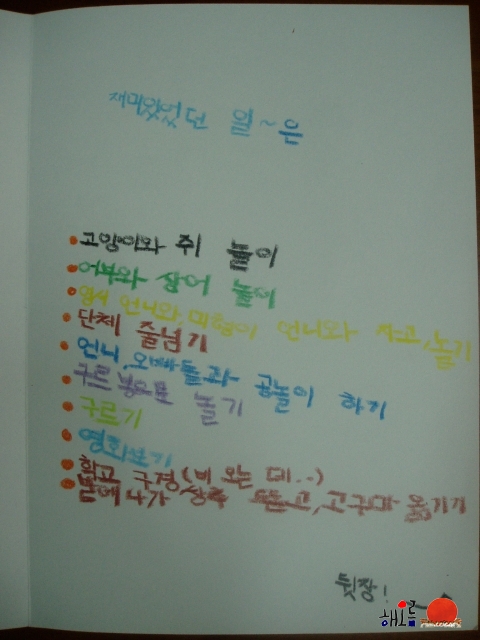 재미있었던 일~은
고양이와 쥐 놀이
어부와 상어 놀이
언니와, 언니와 자고, 놀기
단체 줄넘기
언니, 오빠들과 공놀이 하기
구르 놀기
구르기
영화보기
학교 구경(비 오는 데..)
밭에 나가 상추 뜯고, 고구마 옮기기
뒷장!
해오름